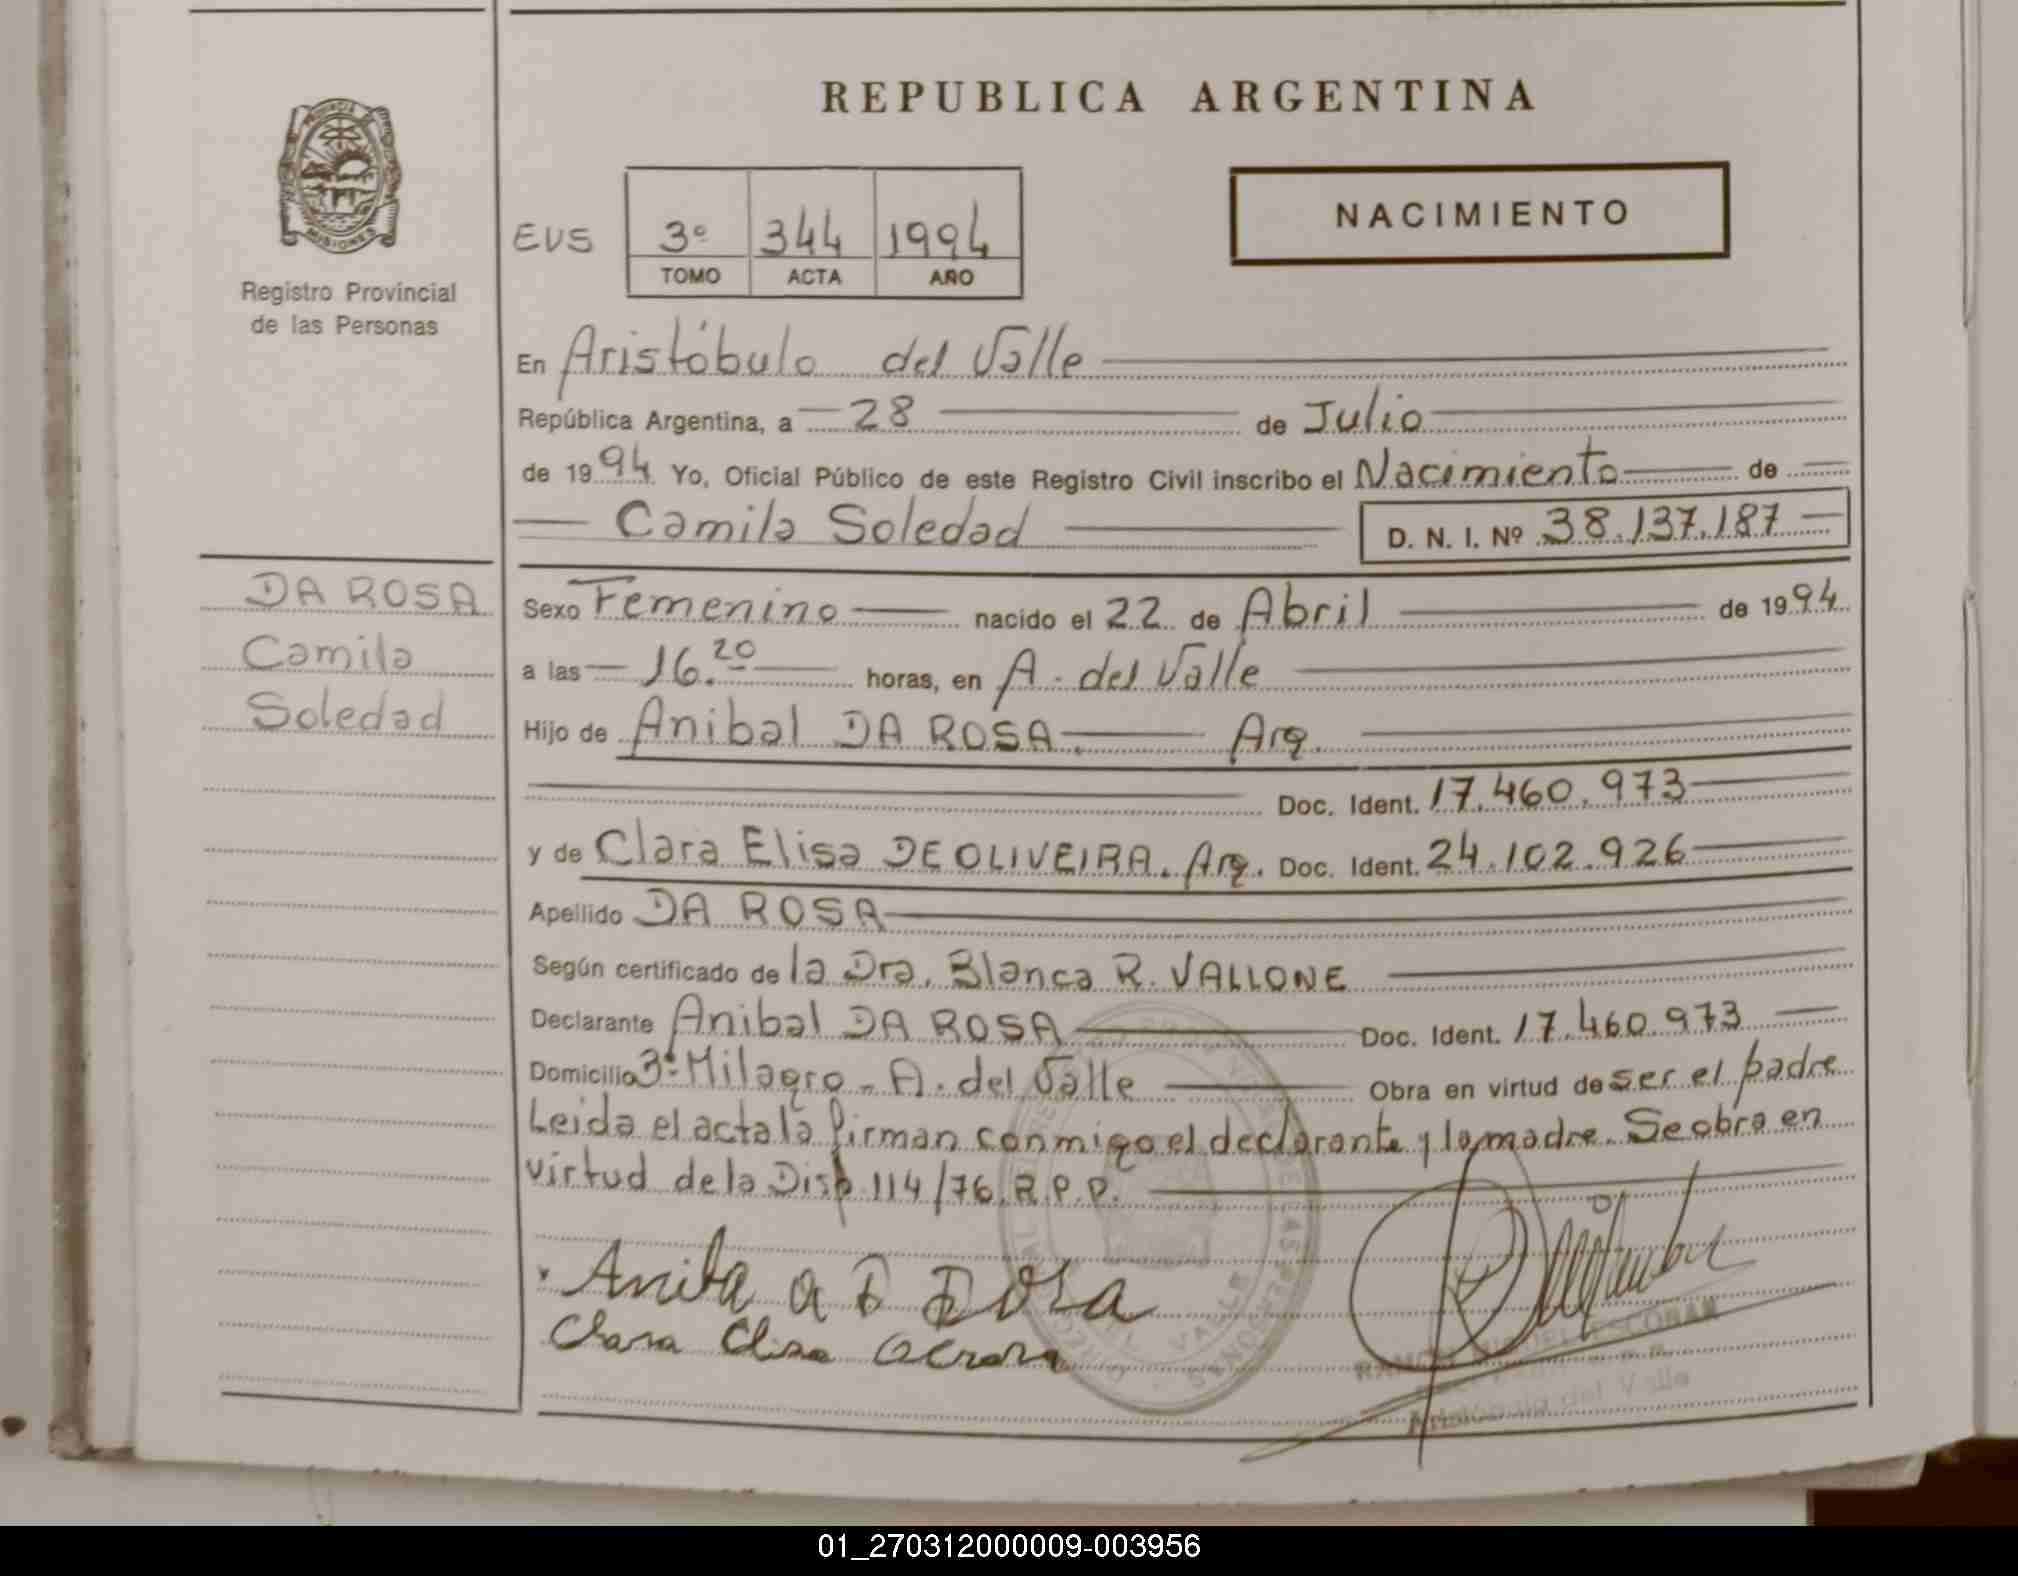 REPUBLICA ARGENTINA
PROVINCIA DE
MISIONES
Registro Provincial
de las Personas
NACIMIENTO
EVS 3º 344 1994
TOMO ACTA AÑO
En Aristóbulo del Valle
República Argentina, a 28 de Julio
de 1994 Yo, Oficial Público de este Registro Civil inscribo el Nacimiento de
Camila Soledad D. N. I. Nº 38.137.187
DA ROSA
Camila
Soledad
Sexo Femenino nacido el 22 de Abril de 1994
a las 16.20 horas, en A. del Valle
Hijo de Anibal DA ROSA. Arg.
Doc. Ident. 17.460.973
y de Clara Elisa DE OLIVEIRA. Arg. Doc. Ident. 24.102.926
Apellido DA ROSA
Según certificado de la Dra. Blanca R. VALLONE
Declarante Anibal DA ROSA Doc. Ident. 17.460.973
Domicilio 3º Milagro - A. del Valle Obra en virtud de ser el padre
Leida el acta la firman conmigo el declarante y la madre. Se obra en
virtud de la Disp. 114/76. R.P.P.
Clara Elisa
ESCOBAR
Aristóbulo del Valle
01_270312000009-003956